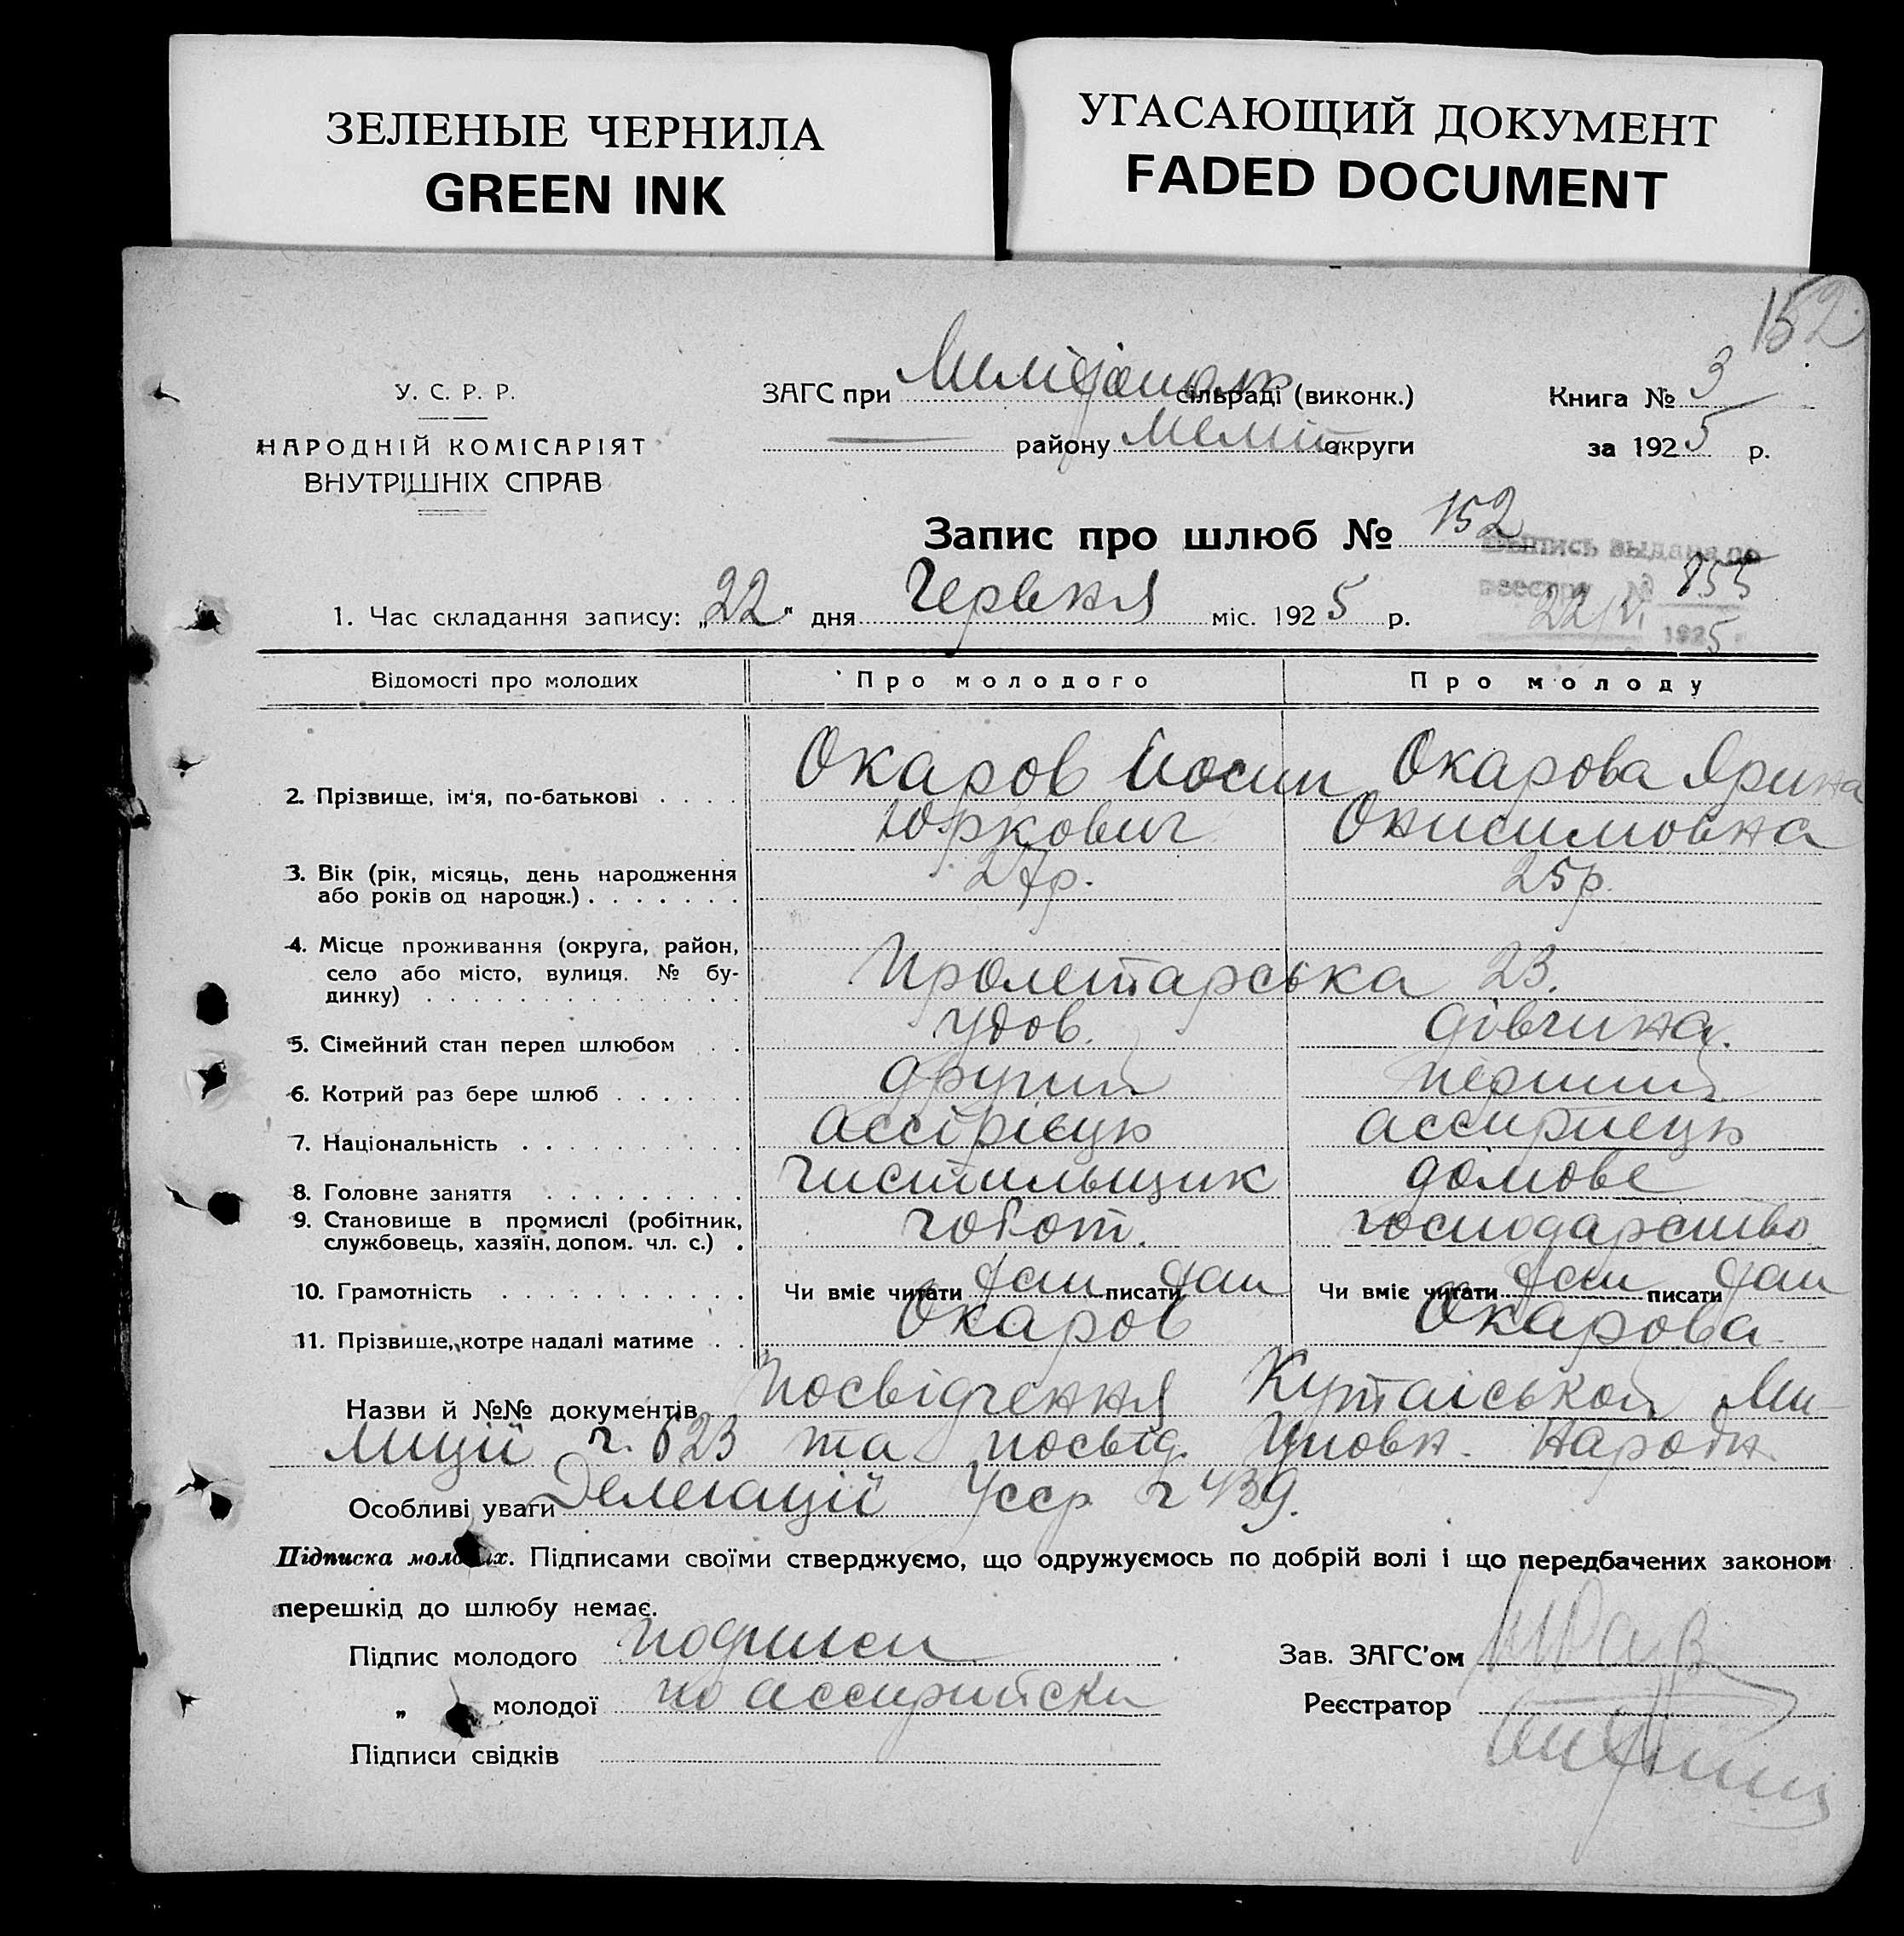 ЗЕЛЕНЫЕ ЧЕРНИЛА
GREEN INK
УГАСАЮЩИЙ ДОКУМЕНТ
FADED DOCUMENT
152
У. С. Р. Р.
НАРОДНІЙ КОМІСАРІЯТ
ВНУТРІШНІХ СПРАВ
ЗАГС при сільраді (виконк.)
району Меліт округи
Книга № 3
за 1925 р.
Запис про шлюб № 152
Выпись выдана по
реестру № 855
22/VI 1925
1. Час складання запису: „22“ дня Червня міс. 1925 р.
Відомості про молодих Про молодого Про молоду
2. Прізвище, ім'я, по-батькові Окаров Йосип Окарова Ярина
Юркович Онисимовна
3. Вік (рік, місяць, день народження 27р. 25р.
або років од народж.)
4. Місце проживання (округа, район,
село або місто, вулиця. № бу- Пролетарська 23.
динку)
5. Сімейний стан перед шлюбом удов. дівчина.
6. Котрий раз бере шлюб другий перший
7. Національність ассірієць ассириець
8. Головне заняття чистильщик домове
9. Становище в промислі (робітник, чобот. господарство
службовець, хазяїн, допом. чл. с.)
10. Грамотність Чи вміє читати писати Чи вміє читати писати
11. Прізвище, котре надалі матиме Окаров Окарова
Назви й №№ документів Посвідчення Кутаіськой Ми-
лиції ч. 623 та посвід. Уповн. Народн.
Особливі уваги Делегації Усср ч 439.
Підписка молодих. Підписами своїми стверджуємо, що одружуємось по добрій волі і що передбачених законом
перешкід до шлюбу немає.
Підпис молодого подписи
„ молодої по ассирийски
Підписи свідків
Зав. ЗАГС'ом
Реєстратор